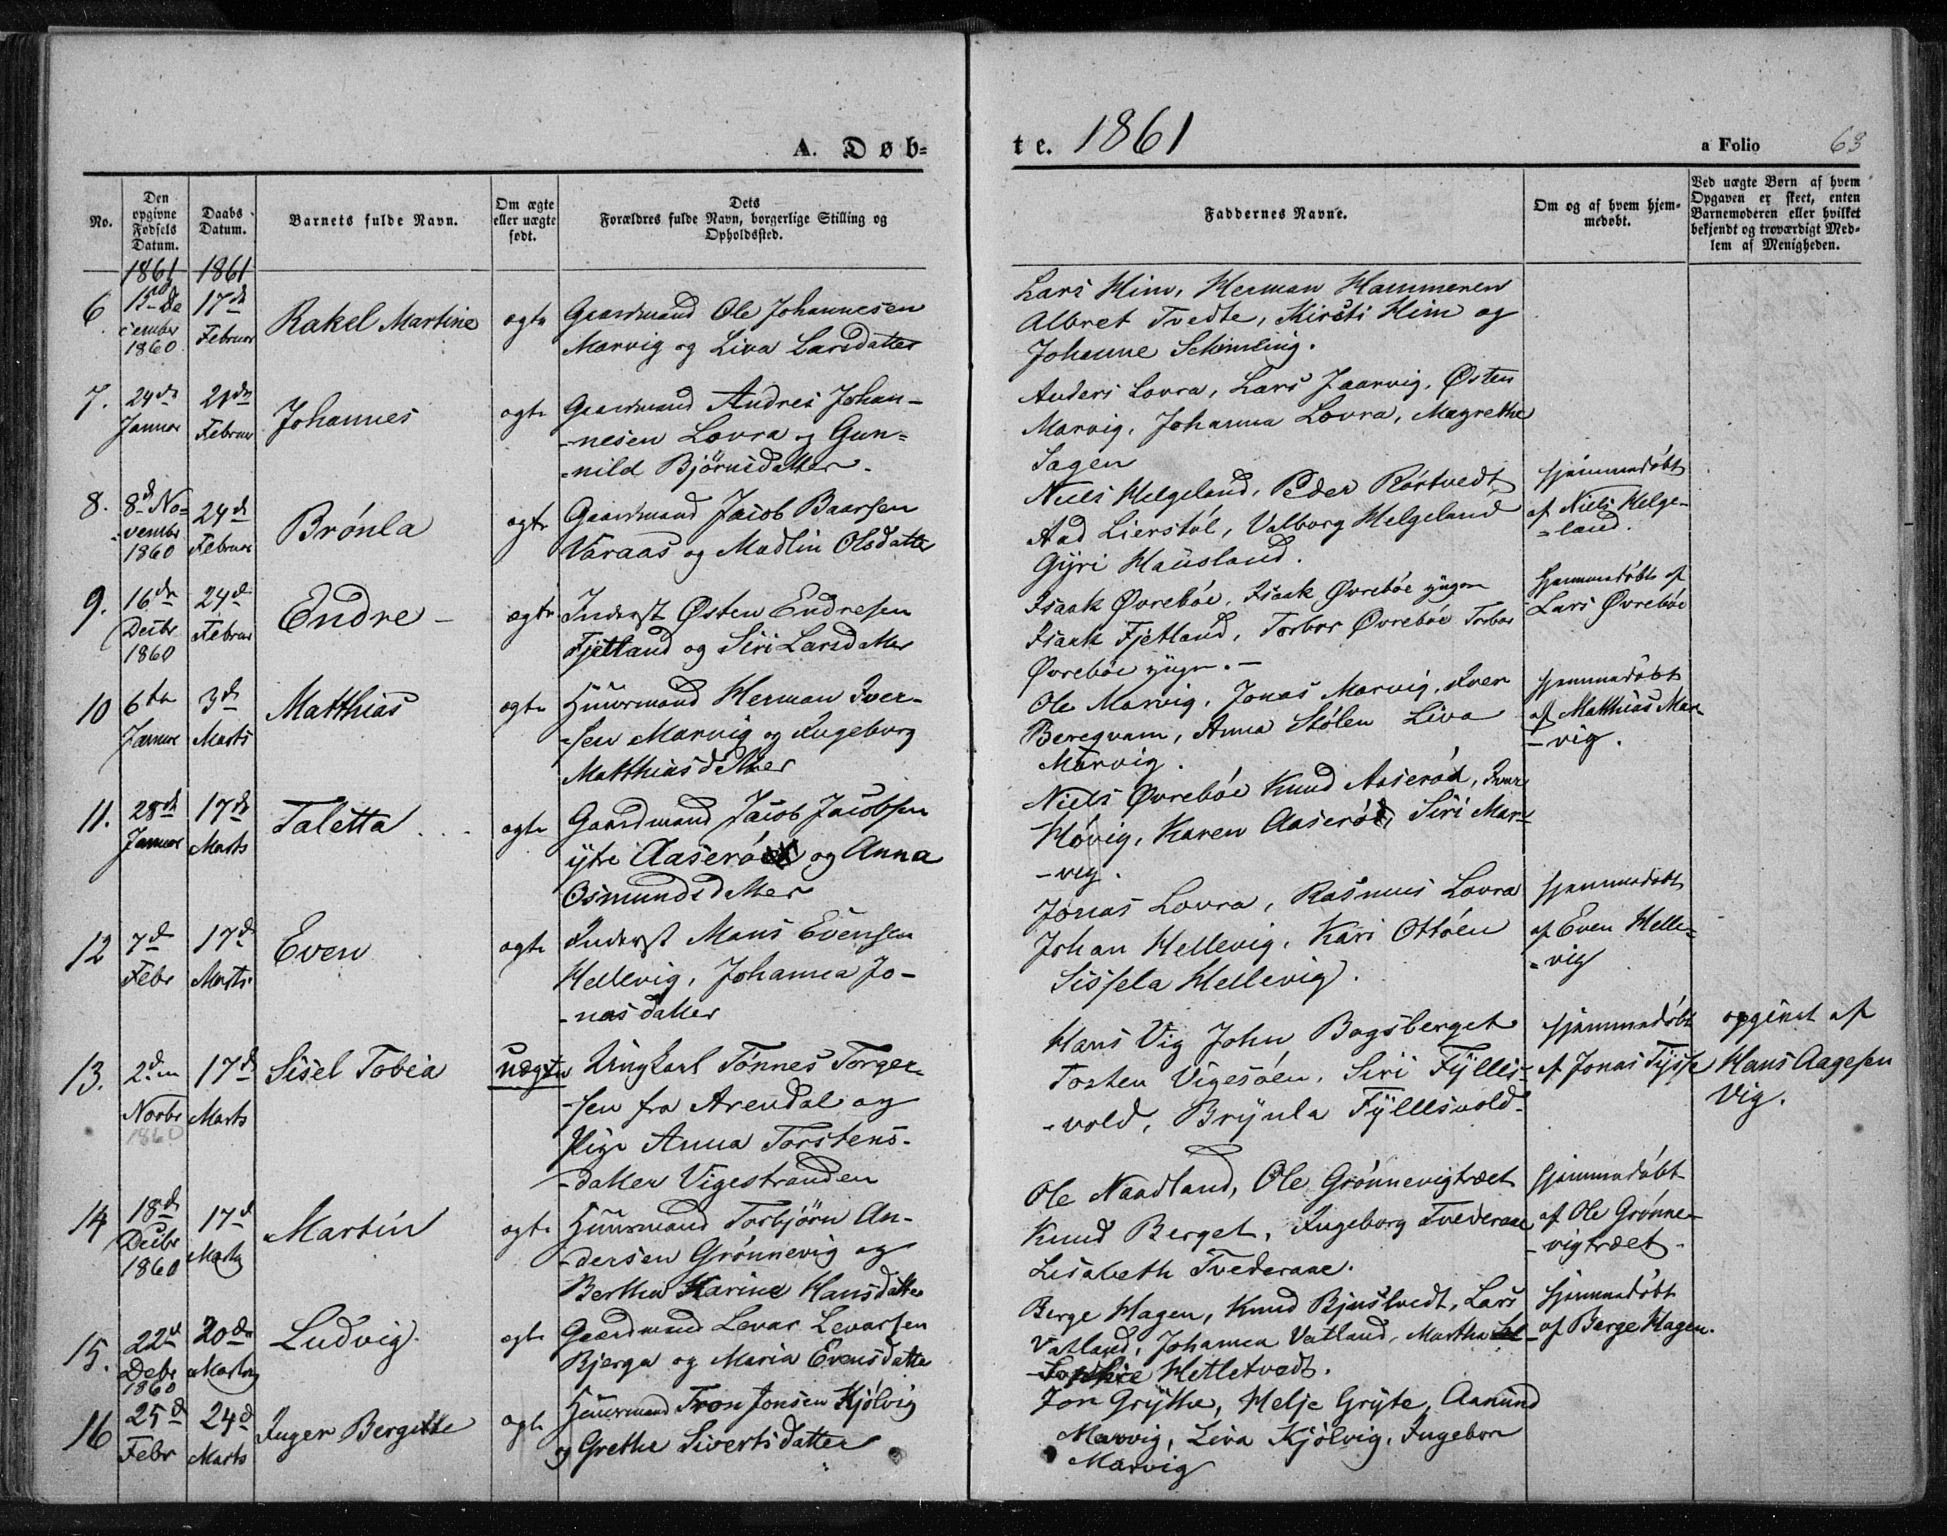 A. Døb-
te. 1861
a Folio 63
No.
Den opgivne Fødsels Datum.
Daabs Datum.
Barnets fulde Navn.
Om ægte eller uægte født.
Dets Forældres fulde Navn, borgerlige Stilling og Opholdssted.
Faddernes Navne.
Om og af hvem hjemmedøbt.
Ved uægte Børn af hvem Opgaven er skeet, enten Barnemoderen eller hvilket bekjendt og troværdigt Medlem af Menigheden.
1861 1861
6 15de December 1860 17de Februar Rakel Martine ægte
Gaardmand Ole Johannesen
Marvig og Liva Larsdatter
Lars Him, Herman Hammeren
Albret Tvedte, Kirsti Him og
Johanne Schimling.
7. 24de Januar 21de Februar Johannes ægte
Gaardmand Andres Johan-
-nesen Lovra og Gun-
-nild Bjørnsdatter.
Anders Lovra, Lars Jaarvig, Østen
Marvig, Johanna Lovra, Magrethe
Sagen
8. 8de November 1860 24de Februar Brónla ægte
Gaardmand Jacob Baarsen
Varaas og Madlin Olsdatter
Niels Helgeland, Peder Rørtvedt
Aad Lierstøl, Valborg Helgeland
Gyri Hausland.
hjemmedøbt
af Niels Helge-
-land.
9. 16de Decbr 1860 24de Februar Endre - ægte
Inderst Østen Endresen
Fjetland og Siri Larsdatter
Isaak Øvrebøe, Isaak Øvrebøe yngre
Isaak Fjetland, Torbor Øvrebøe Torbor
Øvrebøe yngr. -
hjemmedøbt af
Lars Øvrebøe
10 6te Januar 3de Marts Matthias ægte
Huusmand Herman Iver-
-sen Marvig og Ingeborg
Matthiasdatter
Ole Marvig, Jonas Marvig, Iver
Bergqvam, Anna Stølen Liva
Marvig.
hjemmedøbt
af Matthias Mar-
-vig.
11. 28de Januar 17de Marts Taletta ægte
Gaardmand Jacob Jacobsen
ytre Aaserød og Anna
Osmundsdatter
Niels Øvrebøe Knud Aaserød, Iver
Høvig, Karen Aaserød, Siri Mar-
-vig.
12 7de Febr 17de Marts Even ægte
Inderst Mons Evensen
Hellevig, Johanna Jo-
-nasdatter
Jonas Lovra, Rasmus Lovra
Johan Hellevig, Kari Ottøen
Sissela Hellevig.
hjemmedøbt
af Even Helle-
-vig
13. 2den Novbr 1860 17de Marts Sisel Tobia uægte
Ungkarl Tønnes Torger-
-sen fra Arendal og
Pige Anna Torstens-
-datter Vigestranden
Hans Vig John Bogsberget
Torsten Vigesøen, Siri Fyllis-
-vold, Brynla Fyllesvold.
hjemmedøbt
af Jonas Tysse
opgivet af
Hans Aagesen
Vig.
14 18de Decbr 1860 17de Marts Martin ægte
Huusmand Torbjørn An-
-dersen Grønnevig og
Berthe Karine Hansdatter
Ole Naadland, Ole Grønnevigtræet
Knud Berget, Ingeborg Tvederaae
Lisabeth Tvederaae.
hjemmedøbt
af Ole Grønne-
-vigtræet.
15. 22de Debr 1860 20de Marts Ludvig. ægte
Gaardmand Levar Levarsen
Bjerga og Maria Evensdatter
Berge Hagen, Knud Bjuslvedt, Lars
Vatland, Johanna Vatland, Martha
Sophie Hetletvedt.
hjemmedøbt
af Berge Hagen.
16 25de Febr 24de Marts Inger Bergitte ægte
Huusmand Tron Jonsen Kjølvig
og Grethe Sivertsdatter
Jon Grytte, Helje Gryte, Aamund
Marvig, Liva Kjølvig, Ingebor
Marvig